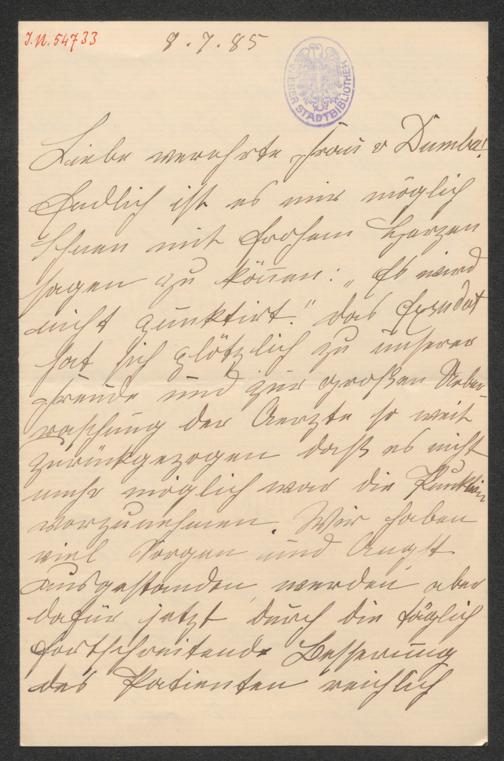 J.N. 54733
8.7.85
WIENER STADTBIBLIOTHEK
Liebe verehrte Frau v Dumba!
Endlich ist es mir möglich
Ihnen mit frohem Herzen
sagen zu können: „Es wird
nicht punktirt." Das Exsudat
hat sich plötzlich zu unserer
Freude und zur großen Ueber-
raschung der Aerzte so weit
zurückgezogen daß es nicht
mehr möglich war die Punktion
vorzunehmen. Wir haben
viel Sorgen und Angst
ausgestanden, werden aber
dafür jetzt durch die täglich
fortschreitende Besserung
des Patienten reichlich